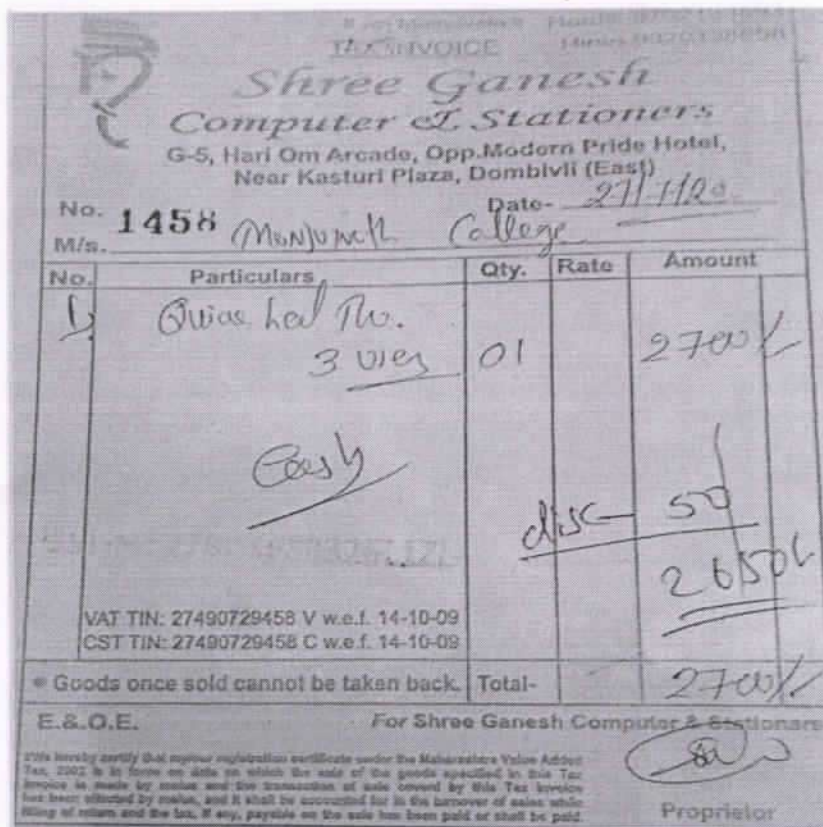 TAX INVOICE
Shree Ganesh
Computer & Stationers
G-5, Hari Om Arcade, Opp.Modern Pride Hotel,
Near Kasturi Plaza, Dombivli (East)
No. 1458 Date- 27/1/20
M/s. Manjunath College
No. Particulars Qty. Rate Amount
1) Led
3 01 2700/-
Cash
disc 50
2650/-
VAT TIN: 27490729458 V w.e.f. 14-10-09
CST TIN: 27490729458 C w.e.f. 14-10-09
Goods once sold cannot be taken back. Total- 2700/-
E.&.O.E. For Shree Ganesh Computer & Stationars
I/We hereby certify that my/our registration certificate under the Maharashtra Value Added
Tax, 2002 is in force on date on which the sale of the goods specified in this Tax
Invoice is made by me/us and the transaction of sale coverd by this Tax Invoice
has been effected by me/us, and it shall be accounted for in the turnover of sales while
filing of return and the tax, if any, payable on the sale has been paid or shall be paid.
Proprietor